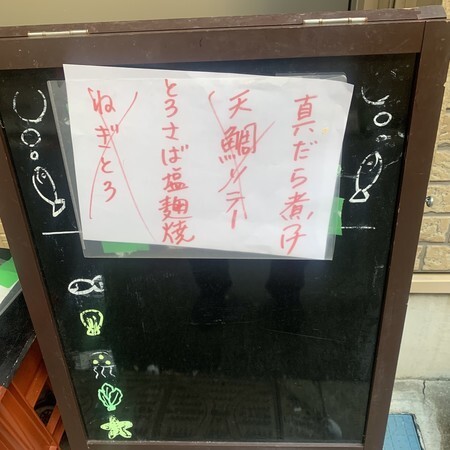 真だら煮付
天鯛ソテー
とろさば塩麹焼
ねぎとろ